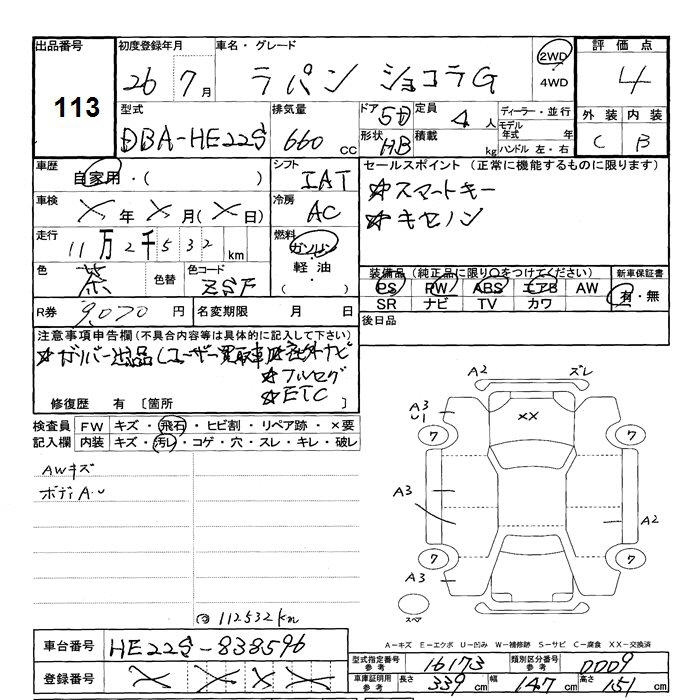 出品番号 初度登録年月 車名・グレード 評価点
113
26 7月 ラパン ショコラG 2WD 4WD 4
型式 排気量 ドア 5D 定員 4人 ディーラー・並行 外装 内装
DBA-HE22S 660cc 形状 HB 積載 kg モデル年式 年 ハンドル 左・右 C B
車歴 自家用・( ) シフト IAT セールスポイント (正常に機能するものに限ります)
☆スマートキー
車検 × 年 × 月(×日) 冷房 AC ☆キセノン
走行 11万2千532km 燃料 ガソリン 軽油・
色 茶 色替 色コード ZSF 装備品(純正品に限り○をつけてください) 新車保証書
PS PW ABS エアB AW 有・無
SR ナビ TV カワ
R券 9,070円 名変期限 月 日 後日品
注意事項申告欄(不具合内容等は具体的に記入して下さい)
☆ガリバー出品(ユーザー買取車) ☆社外ナビ
☆フルセグ
☆ETC
修復歴 有 [箇所 ]
検査員記入欄 FW キズ・飛石・ヒビ割・リペア跡・×要
内装 キズ・汚レ・コゲ・穴・スレ・キレ・破レ
AWキズ
ボディA・U
A2 ズレ
A3
U1
XX
7 7
A3 A2
7 7
A3
スペア
@112532km
A-キズ E-エクボ U-凹み W-補修跡 S-サビ C-腐食 XX-交換済
車台番号 HE22S-838596
型式指定番号 参考 16173 類別区分番号 参考 0009
登録番号 × × × ×
車庫証明用 参考 長さ 339cm 幅 147cm 高さ 151cm